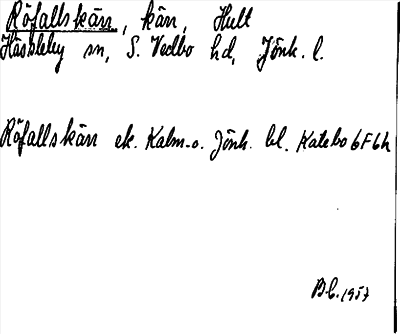 Röfallskärr, kärr, Hult
Hässleby sn, S. Vedbo hd, Jönk. l.
Röfallskärr ek. Kalm. o. Jönk. bl. Katebo 6F6h
1957